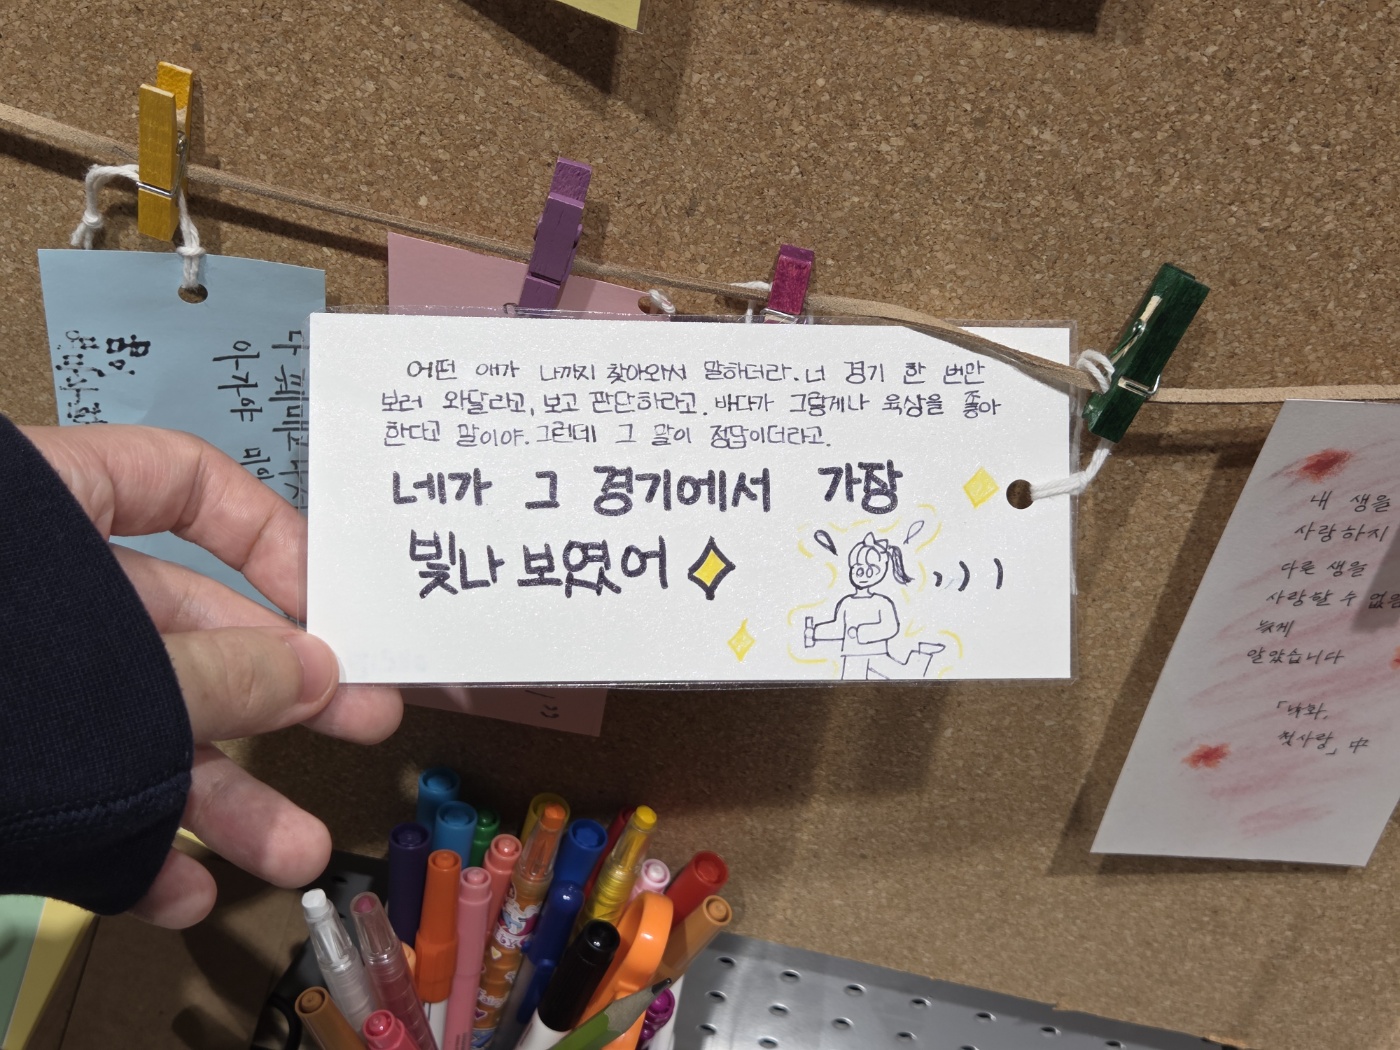 어떤 애가 나까지 찾아와서 말하더라. 너 경기 한 번만
보러 와달라고, 보고 판단하라고. 바다가 그렇게나 육상을 좋아
한다고 말이야. 그런데 그 말이 정답이더라고.
네가 그 경기에서 가장
빛나 보였어
내 생을
사랑하지
다른 생을
사랑할 수 없음
늦게
알았습니다
「낙화,
첫사랑」 中